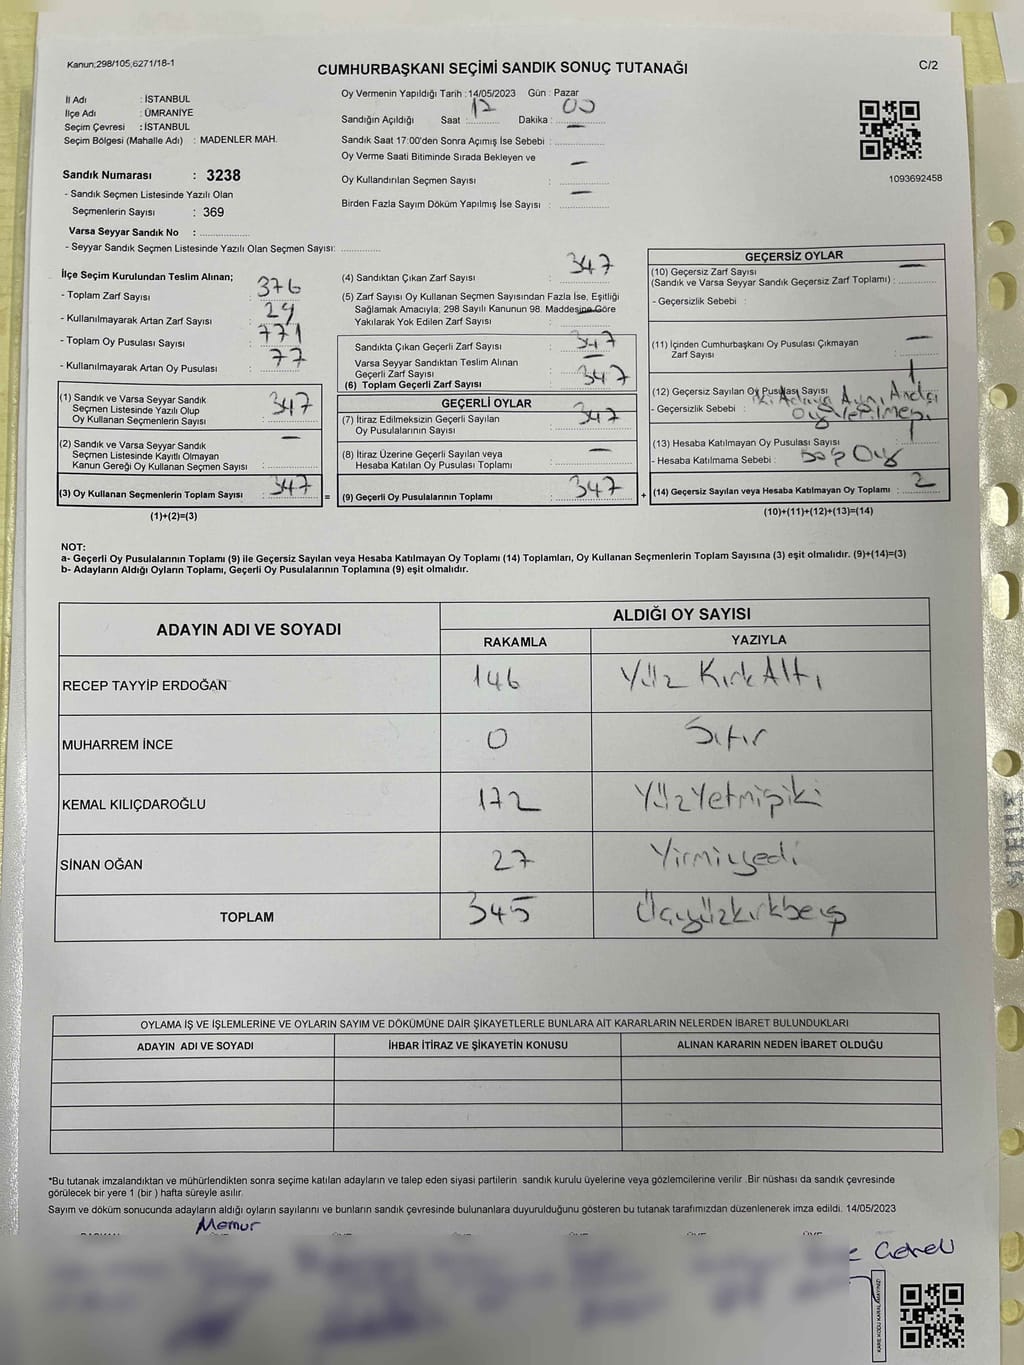 Kanun;298/105,6271/18-1
CUMHURBAŞKANI SEÇİMİ SANDIK SONUÇ TUTANAĞI
C/2
İl Adı : İSTANBUL
İlçe Adı : ÜMRANİYE
Seçim Çevresi : İSTANBUL
Seçim Bölgesi (Mahalle Adı) : MADENLER MAH.
Sandık Numarası : 3238
- Sandık Seçmen Listesinde Yazılı Olan
Seçmenlerin Sayısı : 369
Varsa Seyyar Sandık No :
- Seyyar Sandık Seçmen Listesinde Yazılı Olan Seçmen Sayısı:
Oy Vermenin Yapıldığı Tarih : 14/05/2023 Gün : Pazar
Sandığın Açıldığı Saat : 17 Dakika : 00
Sandık Saat 17:00'den Sonra Açımış İse Sebebi : —
Oy Verme Saati Bitiminde Sırada Bekleyen ve
Oy Kullandırılan Seçmen Sayısı : —
Birden Fazla Sayım Döküm Yapılmış İse Sayısı : —
1093692458
İlçe Seçim Kurulundan Teslim Alınan;
- Toplam Zarf Sayısı : 376
- Kullanılmayarak Artan Zarf Sayısı : 29
- Toplam Oy Pusulası Sayısı : 771
- Kullanılmayarak Artan Oy Pusulası : 77
(1) Sandık ve Varsa Seyyar Sandık
Seçmen Listesinde Yazılı Olup
Oy Kullanan Seçmenlerin Sayısı : 347
(2) Sandık ve Varsa Seyyar Sandık
Seçmen Listesinde Kayıtlı Olmayan
Kanun Gereği Oy Kullanan Seçmen Sayısı : —
(3) Oy Kullanan Seçmenlerin Toplam Sayısı : 347 =
(1)+(2)=(3)
(4) Sandıktan Çıkan Zarf Sayısı : 347
(5) Zarf Sayısı Oy Kullanan Seçmen Sayısından Fazla İse, Eşitliği
Sağlamak Amacıyla, 298 Sayılı Kanunun 98. Maddesine Göre
Yakılarak Yok Edilen Zarf Sayısı : —
Sandıkta Çıkan Geçerli Zarf Sayısı : 347
Varsa Seyyar Sandıktan Teslim Alınan
Geçerli Zarf Sayısı : —
(6) Toplam Geçerli Zarf Sayısı : 347
GEÇERLİ OYLAR
(7) İtiraz Edilmeksizin Geçerli Sayılan
Oy Pusulalarının Sayısı : 347
(8) İtiraz Üzerine Geçerli Sayılan veya
Hesaba Katılan Oy Pusulası Toplamı : —
(9) Geçerli Oy Pusulalarının Toplamı : 347 +
GEÇERSİZ OYLAR
(10) Geçersiz Zarf Sayısı
(Sandık ve Varsa Seyyar Sandık Geçersiz Zarf Toplamı) : —
- Geçersizlik Sebebi :
(11) İçinden Cumhurbaşkanı Oy Pusulası Çıkmayan
Zarf Sayısı : —
(12) Geçersiz Sayılan Oy Pusulası Sayısı : 1
- Geçersizlik Sebebi : İki Adaya Aynı Anda
Oy Verilmesi
(13) Hesaba Katılmayan Oy Pusulası Sayısı : 1
- Hesaba Katılmama Sebebi : Boş Oy
(14) Geçersiz Sayılan veya Hesaba Katılmayan Oy Toplamı : 2
(10)+(11)+(12)+(13)=(14)
NOT:
a- Geçerli Oy Pusulalarının Toplamı (9) ile Geçersiz Sayılan veya Hesaba Katılmayan Oy Toplamı (14) Toplamları, Oy Kullanan Seçmenlerin Toplam Sayısına (3) eşit olmalıdır. (9)+(14)=(3)
b- Adayların Aldığı Oyların Toplamı, Geçerli Oy Pusulalarının Toplamına (9) eşit olmalıdır.
ADAYIN ADI VE SOYADI ALDIĞI OY SAYISI
RAKAMLA YAZIYLA
RECEP TAYYİP ERDOĞAN 146 Yüz Kırk Altı
MUHARREM İNCE 0 Sıfır
KEMAL KILIÇDAROĞLU 172 Yüzyetmişiki
SİNAN OĞAN 27 Yirmiyedi
TOPLAM 345 Üçyüzkırkbeş
OYLAMA İŞ VE İŞLEMLERİNE VE OYLARIN SAYIM VE DÖKÜMÜNE DAİR ŞİKAYETLERLE BUNLARA AİT KARARLARIN NELERDEN İBARET BULUNDUKLARI
ADAYIN ADI VE SOYADI İHBAR İTİRAZ VE ŞİKAYETİN KONUSU ALINAN KARARIN NEDEN İBARET OLDUĞU
*Bu tutanak imzalandıktan ve mühürlendikten sonra seçime katılan adayların ve talep eden siyasi partilerin sandık kurulu üyelerine veya gözlemcilerine verilir .Bir nüshası da sandık çevresinde
görülecek bir yere 1 (bir ) hafta süreyle asılır.
Sayım ve döküm sonucunda adayların aldığı oyların sayılarını ve bunların sandık çevresinde bulunanlara duyurulduğunu gösteren bu tutanak tarafımızdan düzenlenerek imza edildi. 14/05/2023
Memur
KARE KODU KARALAMAYINIZ!